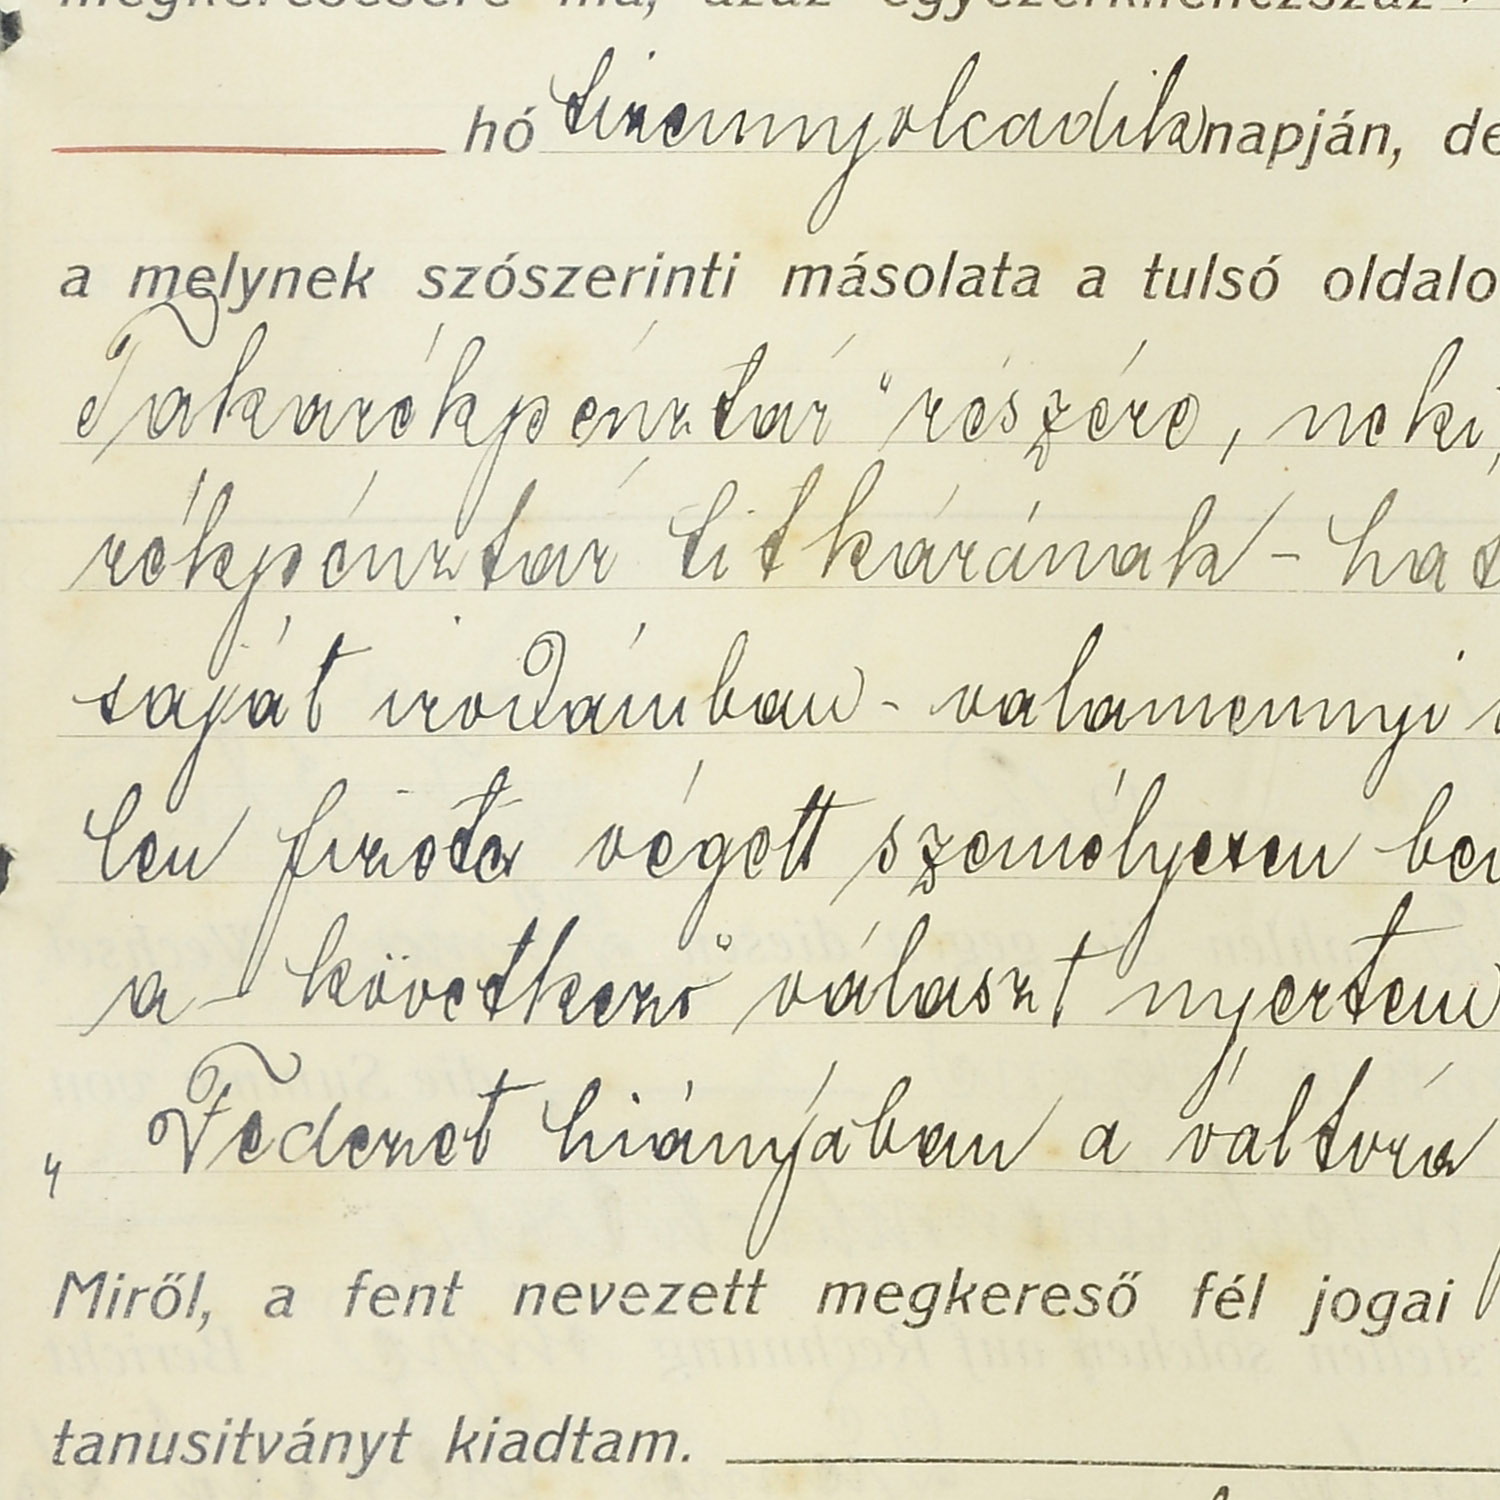 megkeresésére ma, azaz egyezerkilenczszáz
hó tizennyolcadik napján, de
a melynek szószerinti másolata a tulsó oldalo
Takarékpénztár" részére, neki,
rékpénztár titkárának - hat
saját irodámban - valamennyi
len fizetés végett személyesen be
a - következő választ nyertem
„Fedezet hiányában a váltóra
Miről, a fent nevezett megkereső fél jogai
tanusitványt kiadtam.